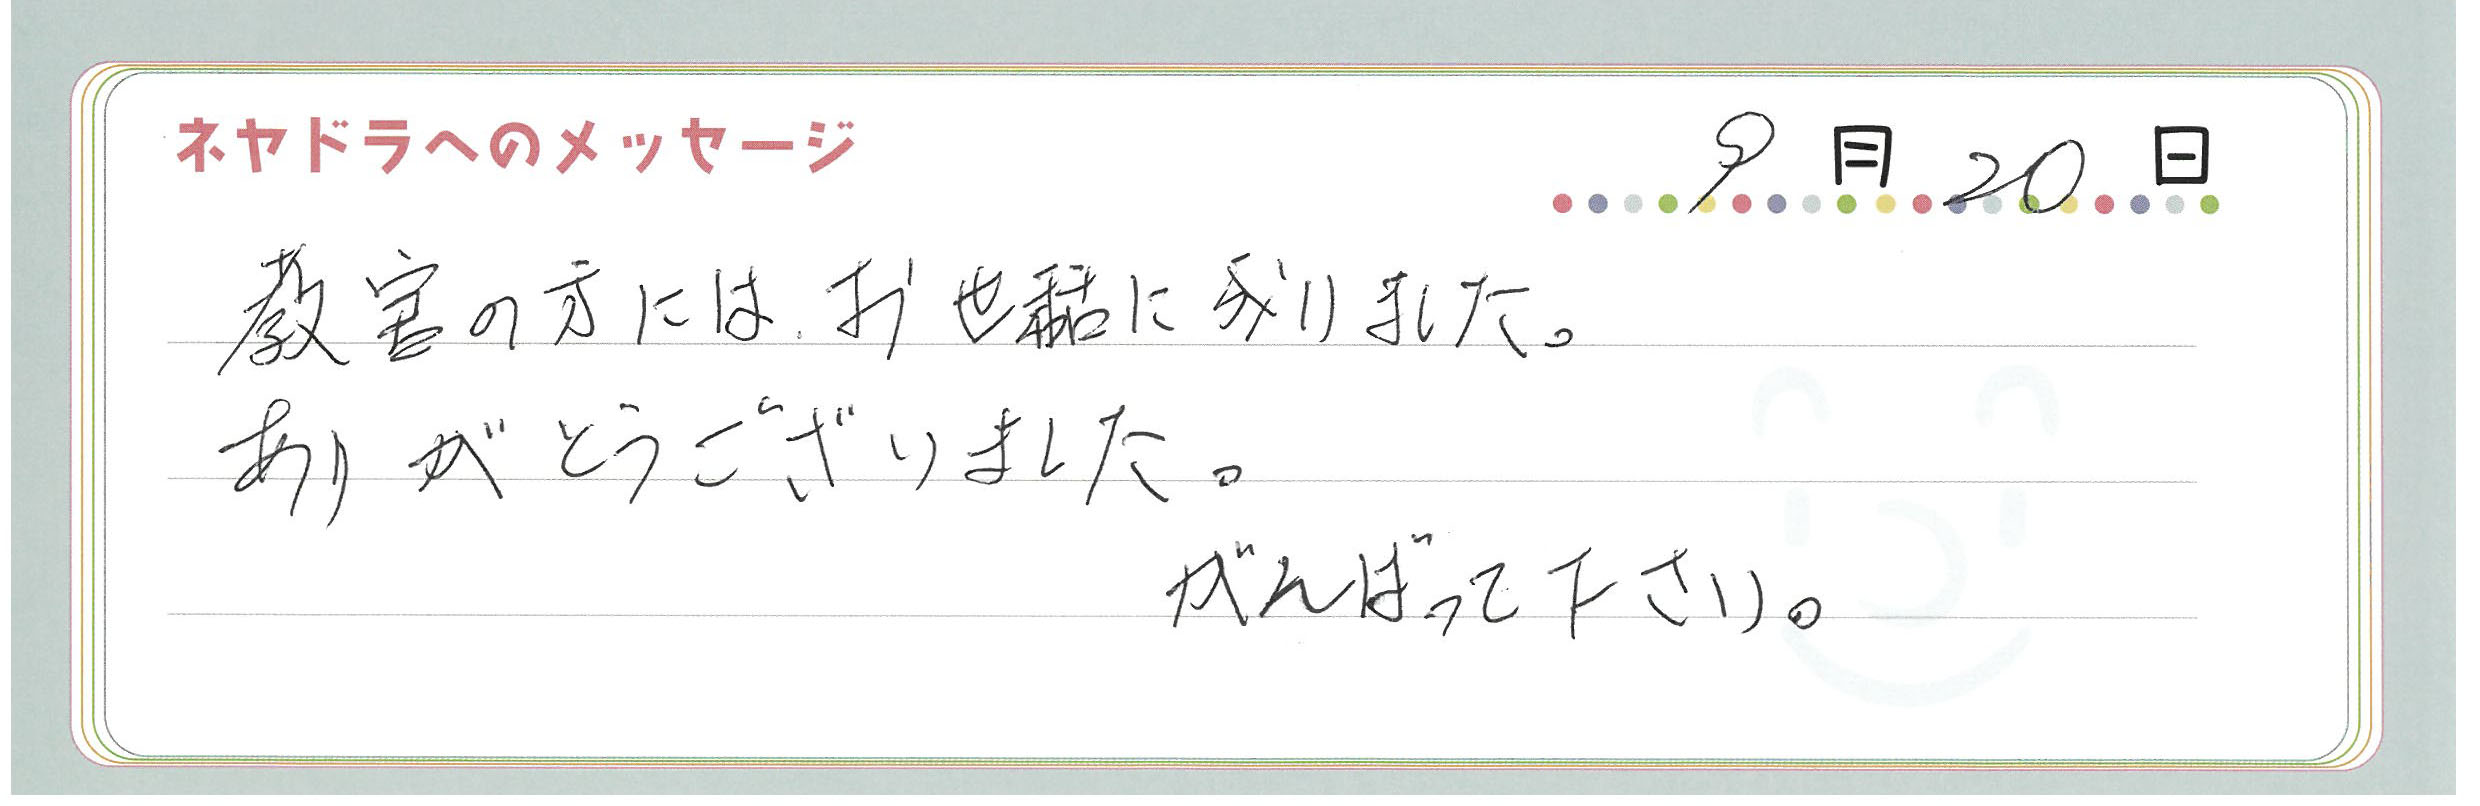 ネヤドラへのメッセージ
9月20日
教室の方には、お世話に成りました。
ありがとうございました。
がんばって下さい。